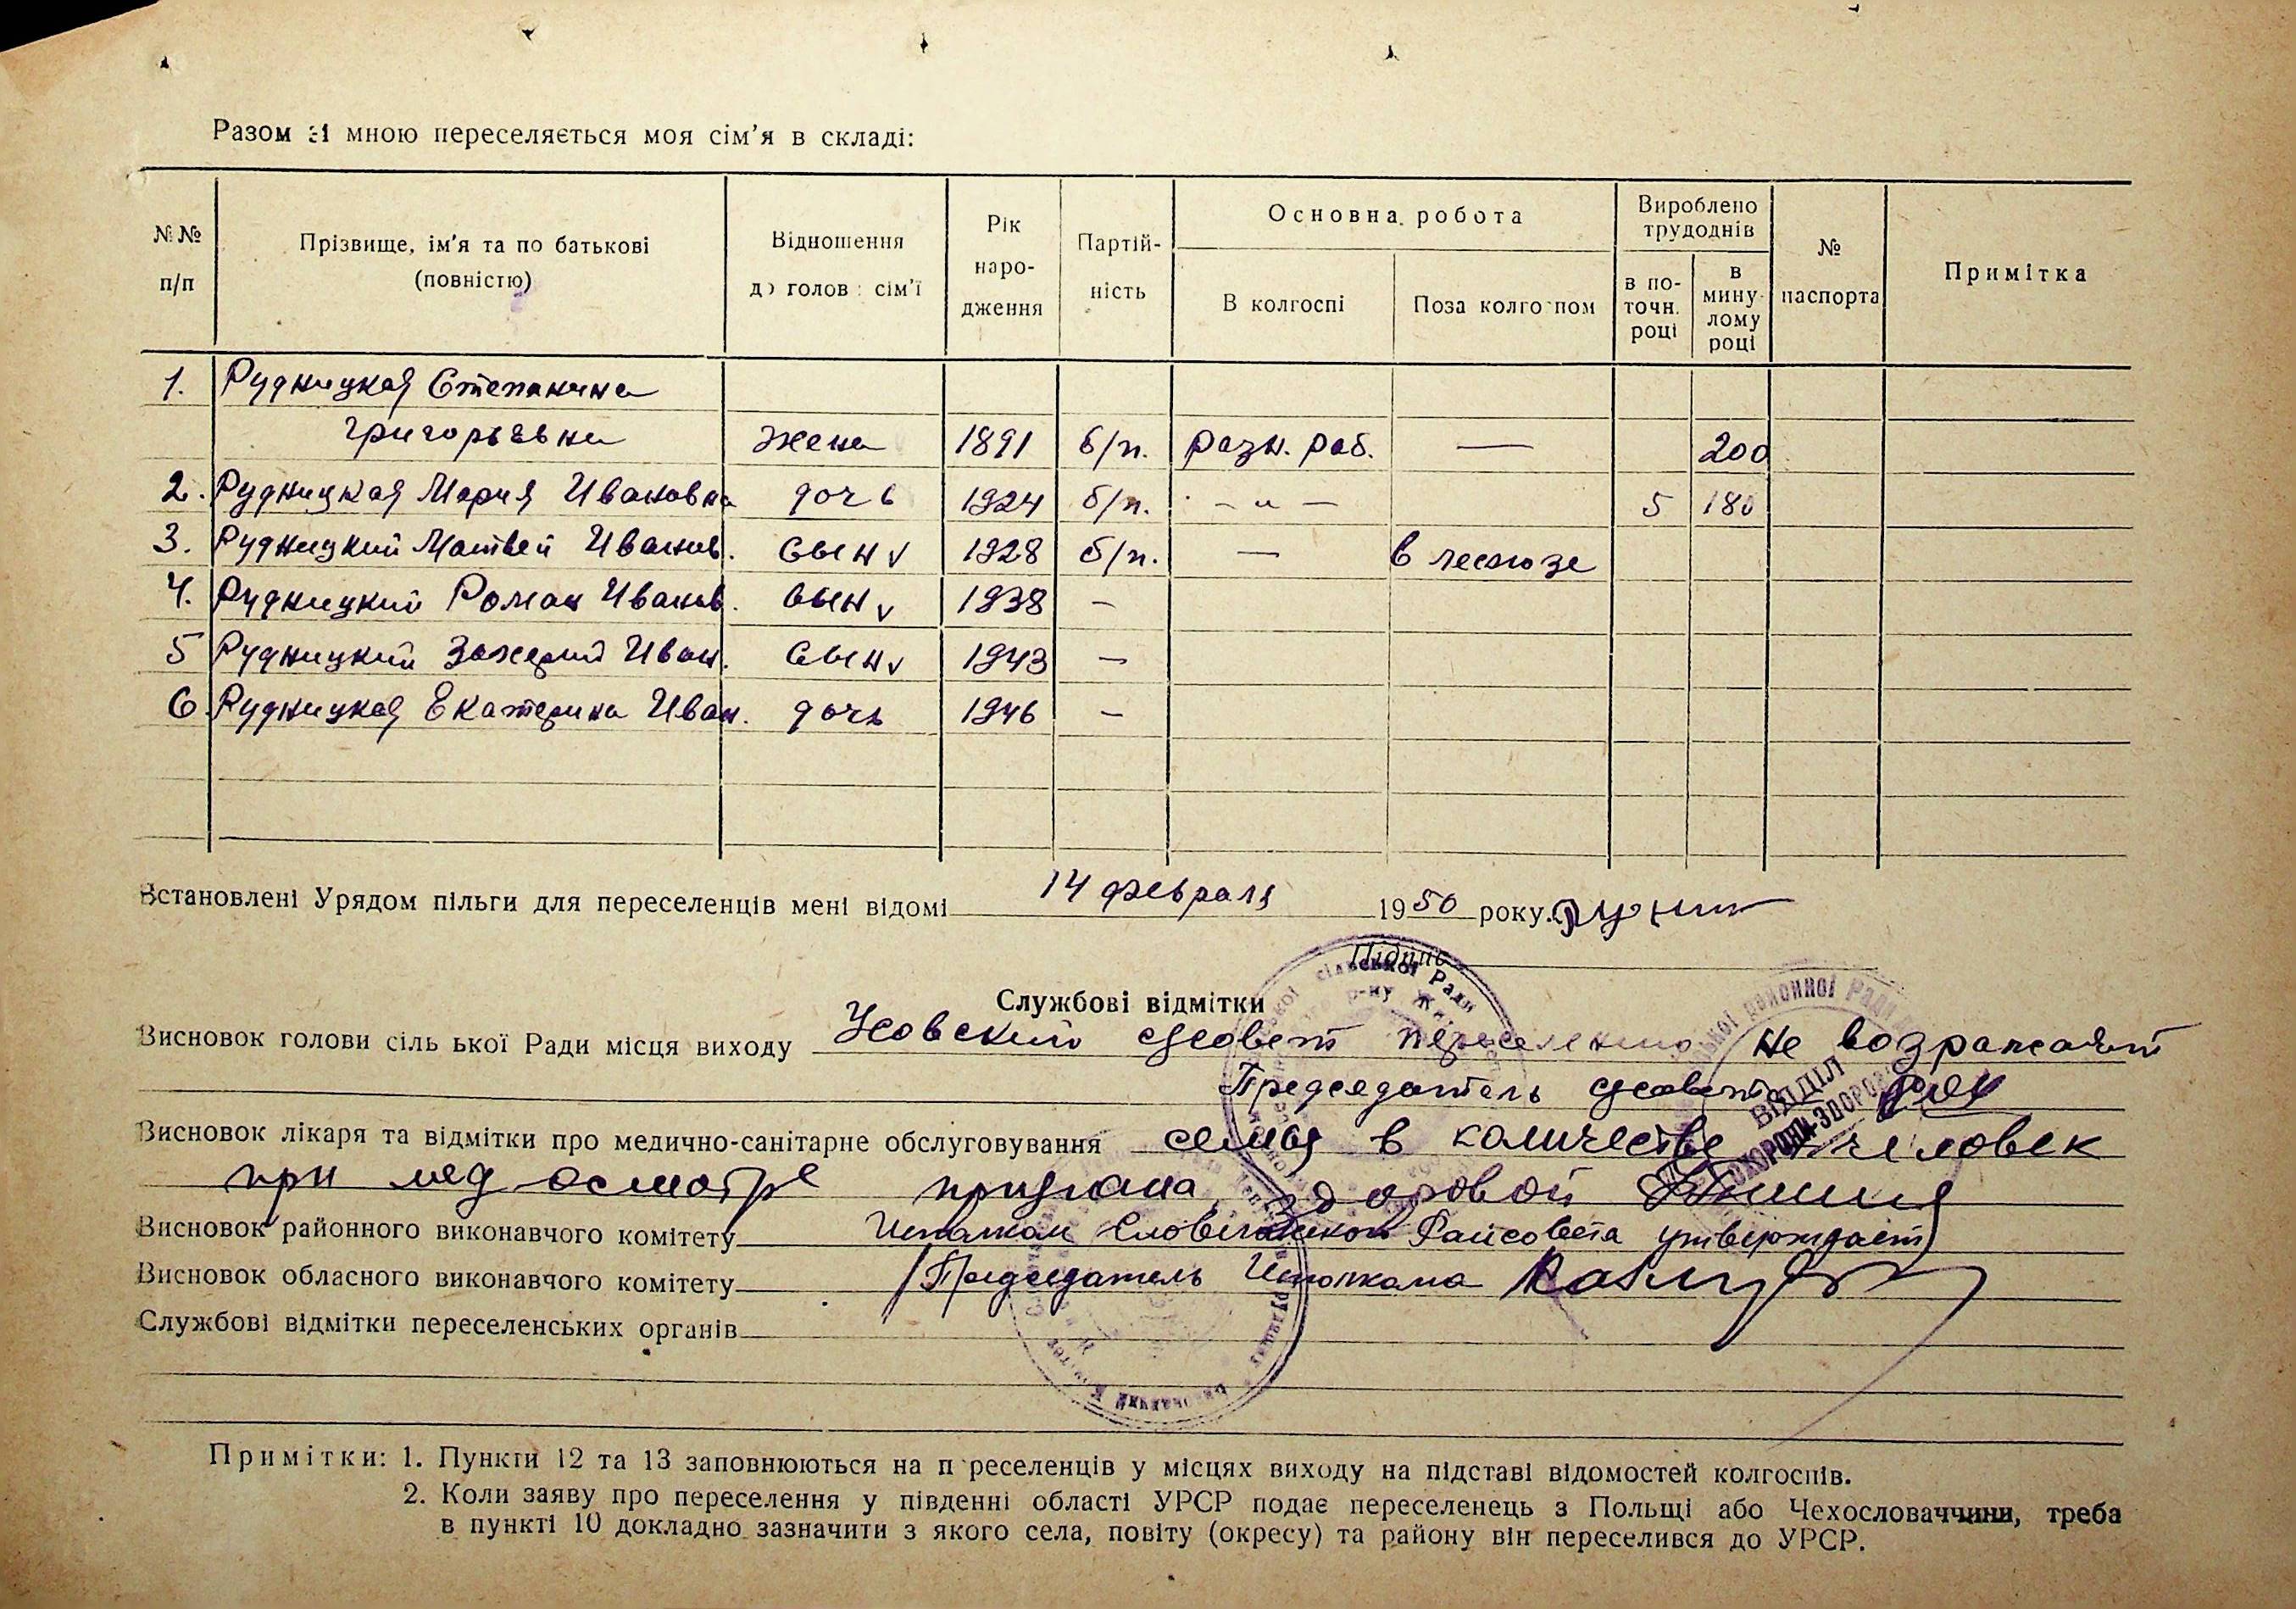 Разом зі мною переселяється моя сім'я в складі:
№№ п/п
Прізвище, ім'я та по батькові (повністю)
Відношення до голови сім'ї
Рік народження
Партій-ність
Основна робота
В колгоспі
Поза колгоспом
Вироблено трудоднів
в по-точн. році
в мину-лому році
№ паспорта
Примітка
1. Рудницкая Степанина
Григорьевна жена 1891 б/п. разн. раб. — 200
2. Рудницкая Мария Ивановна дочь 1924 б/п. - „ - 5 180
3. Рудницкий Матвей Иванов. сын v 1928 б/п. — в лесхозе
4. Рудницкий Роман Иванов. сын v 1938 —
5 Рудницкий Иван. сын v 1943 —
6 Рудницкая Екатерина Иван. дочь 1946 —
Встановлені Урядом пільги для переселенців мені відомі 14 февраля 1950 року.
Підпис
Службові відмітки
Висновок голови сільської Ради місця виходу Усовский с/совет не возражает
Председатель с/совета
Висновок лікаря та відмітки про медично-санітарне обслуговування семья в количестве человек
при мед осмотре признана здоровой
Висновок районного виконавчого комітету Исполком Словечанского Райсовета утверждает
Висновок обласного виконавчого комітету Председатель Исполкома
Службові відмітки переселенських органів
сільської Ради
районної Ради
ВІДДІЛ
ОХОРОНИ ЗДОРОВ
Виконавчий Комітет
Примітки: 1. Пункти 12 та 13 заповнюються на переселенців у місцях виходу на підставі відомостей колгоспів.
2. Коли заяву про переселення у південні області УРСР подає переселенець з Польщі або Чехословаччини, треба
в пункті 10 докладно зазначити з якого села, повіту (окресу) та району він переселився до УРСР.